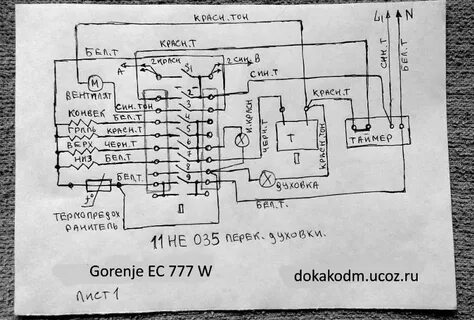 КРАСН. ТОН
L1
N
КРАСН. Т
БЕЛ. Т
А
2 КРАСН
S1
2 СИН. В
СИН. Т
СИН. Т
БЕЛ. Т
М
ВЕНТИЛЯТ
КРАСН. Т
СИН. ТОН
КОНВЕК
БЕЛ. Т
ГРИЛЬ
КРАСН. Т
ВЕРХ
ЧЕРН. Т
НИЗ
БЕЛ. Т
И. КРАСН
ЧЕРН. Т
Т
КРАСН. ТОН
ТАЙМЕР
БЕЛ. Т.
t°
ДУХОВКА
ТЕРМОПРЕДОХ
РАНИТЕЛЬ
БЕЛ. Т.
11 НЕ 035 ПЕРЕК. ДУХОВКИ.
Gorenje EC 777 W
dokakodm.ucoz.ru
ЛИСТ 1